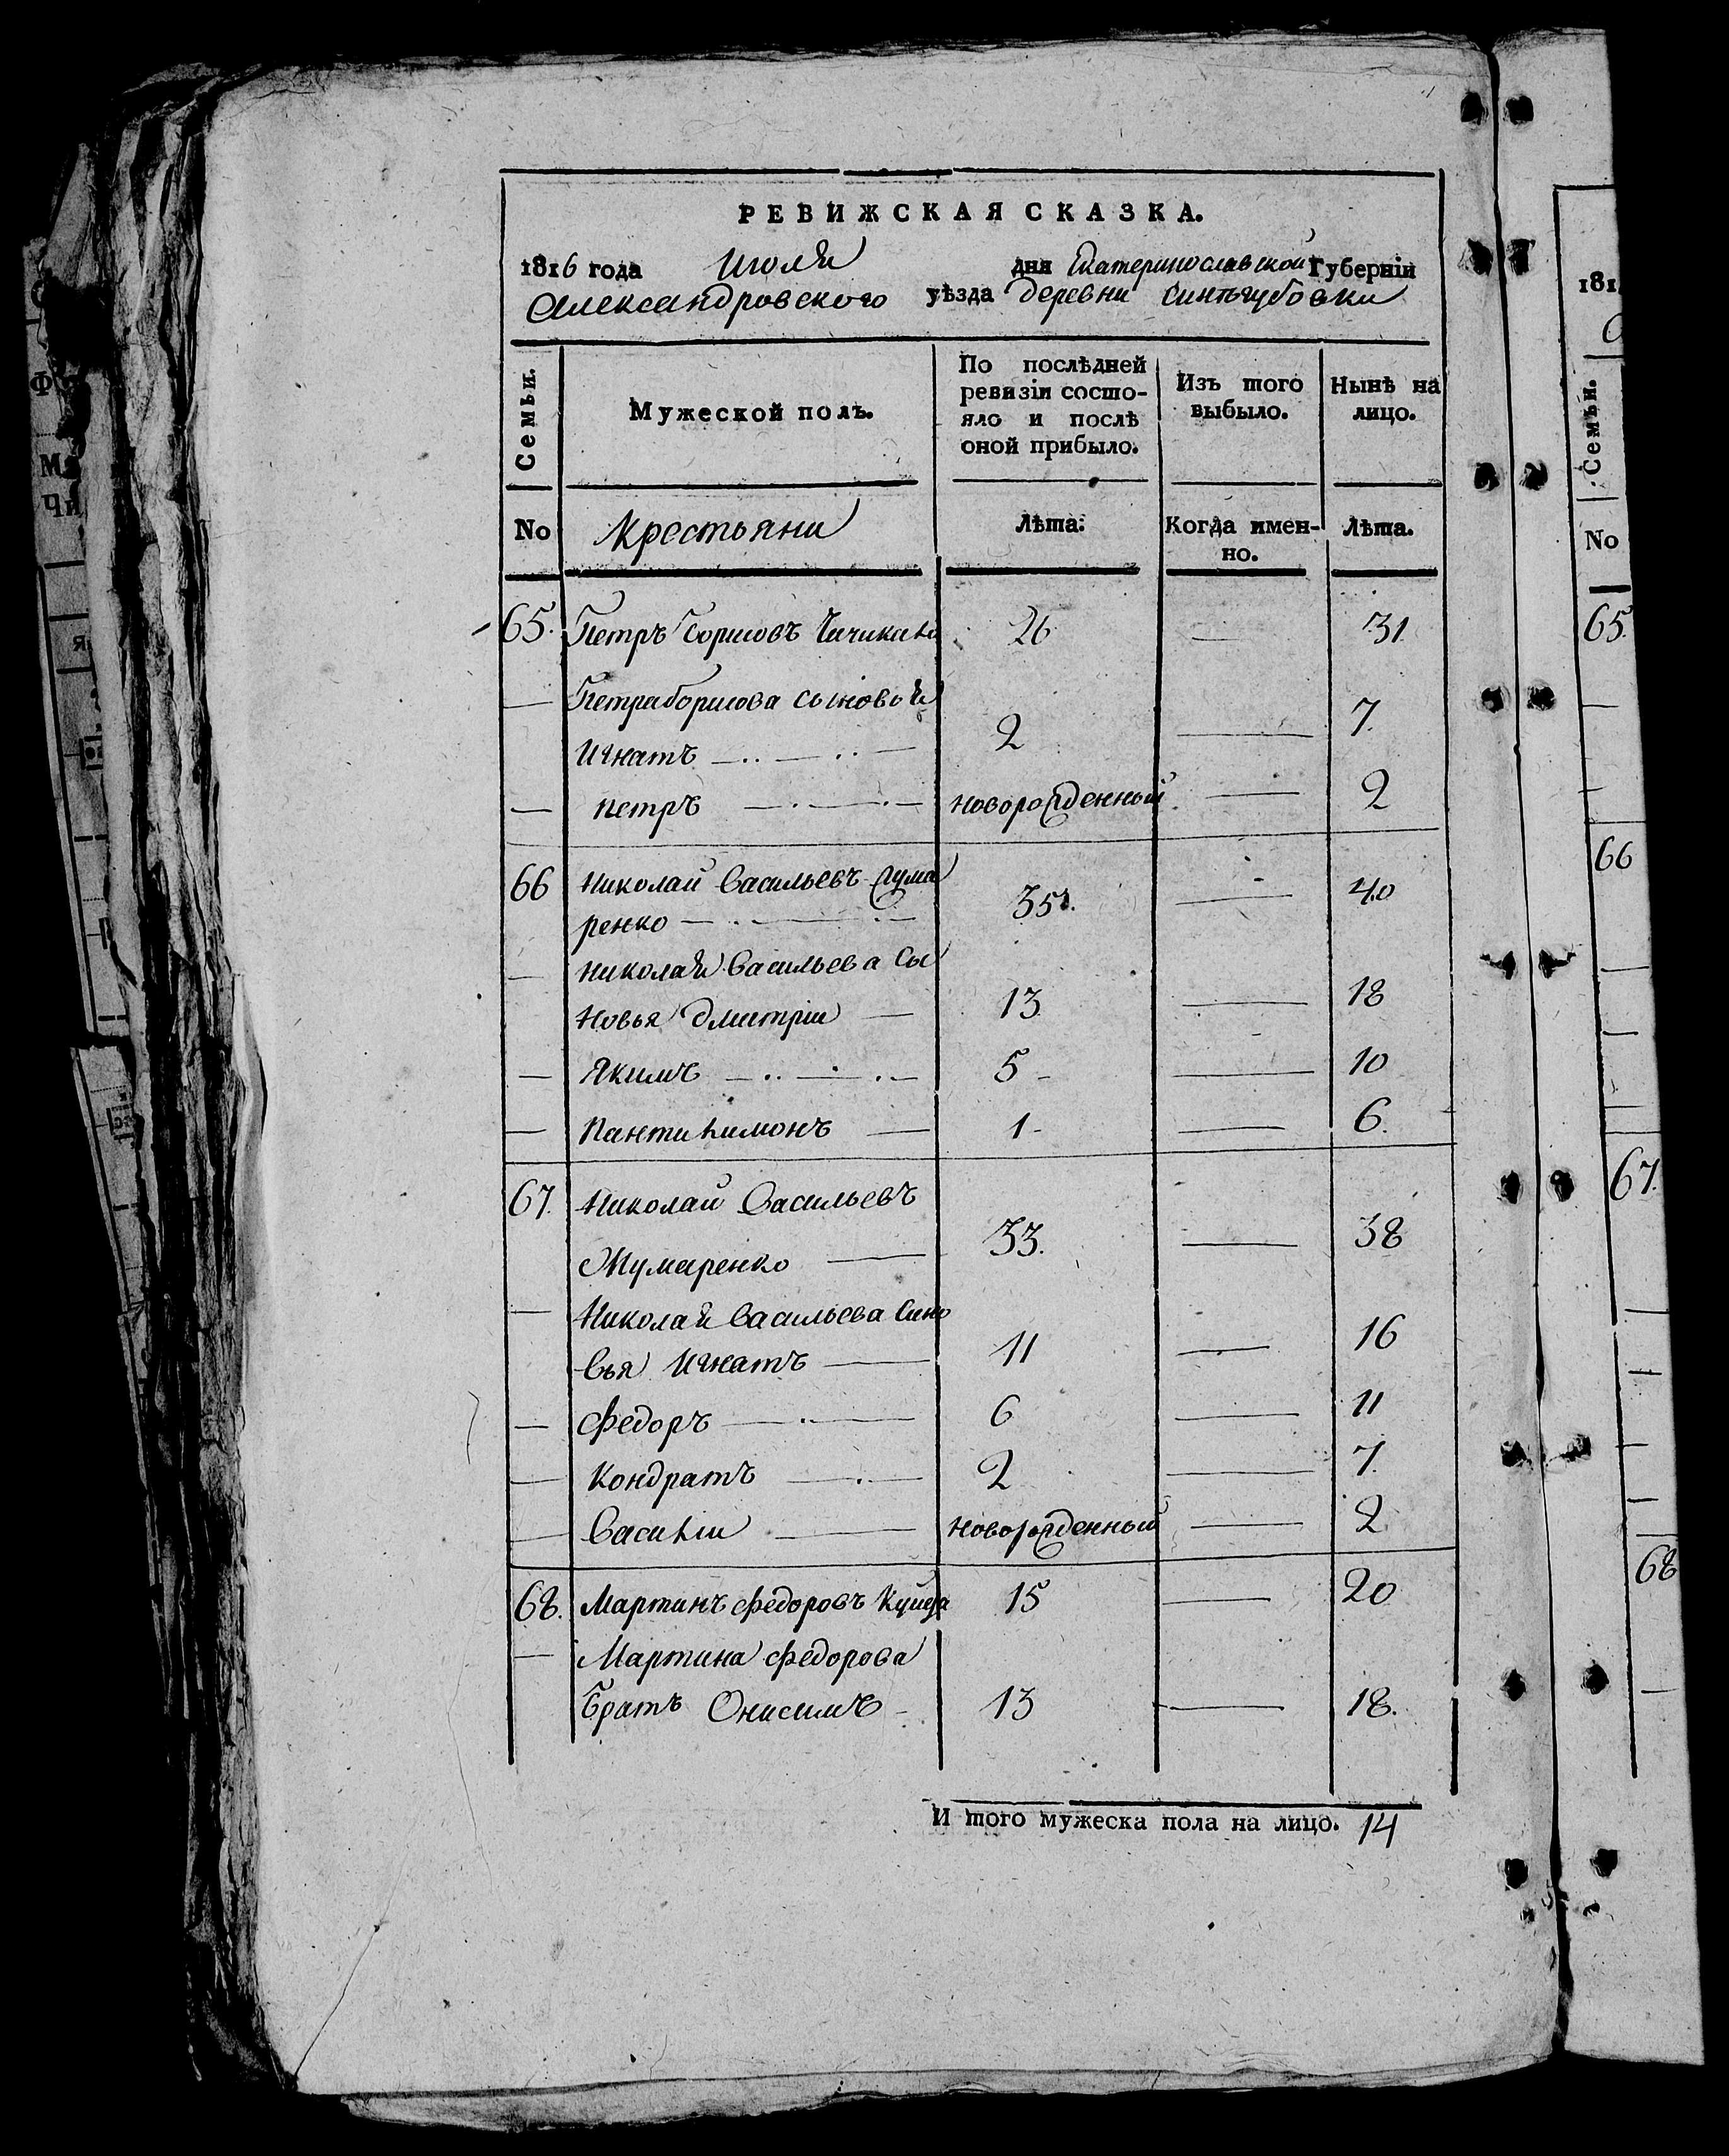 РЕВИЖСКАЯ СКАЗКА.
1816 года Июля дня Екатеринославской Губерніи
Александровского уѣзда деревни Синѣгубовки
Семьи. Мужеской полъ. По послѣдней ревизіи состо- яло и послѣ оной прибыло. Изъ того выбыло. Нынѣ на лицо.
No Крестьяни Лѣта: Когда имен- но. Лѣта.
65. Петръ Борисовъ 26 — 31
— Петра борисова сыновья
Игнатъ 2 — 7.
— петръ новорожденный — 2
66 Николай Васильевъ
ренко 35. — 40
— Николая Васильева Сы
новья Дмитріи — 13 — 18
— Якимъ 5 — 10
— Пантилимонъ — 1 — 6.
67. Николай Васильевъ
Жумаренко — 33. — 38
— Николая Васильева Сино
вья Игнатъ — 11 — 16
— Федоръ 6 — 11
— Кондратъ 2 — 7.
— Василіи — Новорожденный — 2
68. Мартинъ Федоровъ 15 — 20
— Мартина Федорова
Братъ Онисимъ 13 — 18.
И того мужеска пола на лицо. 14
181
Семьи.
No
65.
66
67.
68